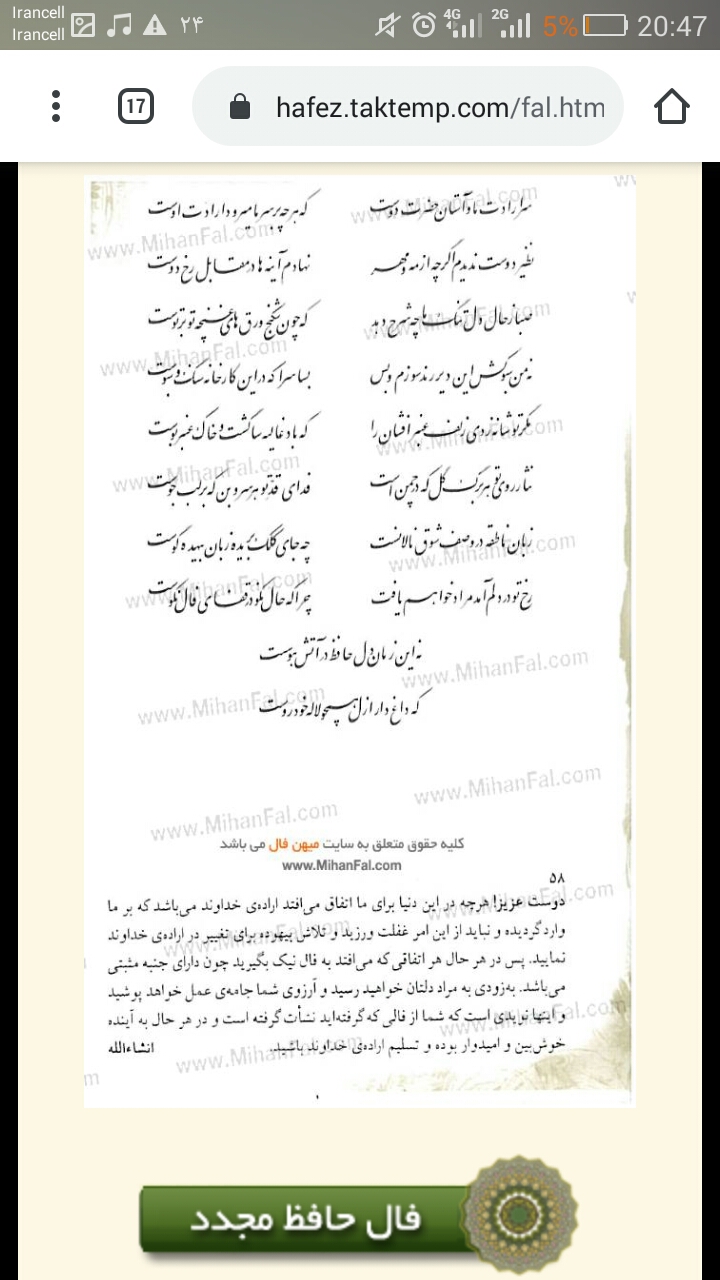 Irancell
Irancell
۲۴
4G
2G
5%
20:47
17
hafez.taktemp.com/fal.htm
سر ارادت ما و آستان حضرت دوست
که هر چه بر سر ما میرود ارادت اوست
نظیر دوست ندیدم اگر چه از مه و مهر
نهادم آینه ها در مقابل رخ دوست
صبا ز حال دل تنگ ما چه شرح دهد
که چون شکنج ورق های غنچه تو بر توست
نه من سبوکش این دیر رندسوزم و بس
بسا سرا که در این کارخانه سنگ و سبوست
مگر تو شانه زدی زلف عنبرافشان را
که باد غالیه سا گشت و خاک عنبر بوست
نثار روی تو هر برگ گل که در چمن است
فدای قد تو هر سروبن که بر لب جوست
زبان ناطقه در وصف شوق نالانست
چه جای کلک بریده زبان بیهده گوست
رخ تو در دلم آمد مراد خواهم یافت
چرا که حال نکو در قفای فال نکوست
نه این زمان دل حافظ در آتش هوست
که داغ دار ازل همچو لاله خودروست
کلیه حقوق متعلق به سایت میهن فال می باشد
www.MihanFal.com
۵۸
دوست عزیز! هرچه در این دنیا برای ما اتفاق می‌افتد اراده‌ی خداوند می‌باشد که بر ما
وارد گردیده و نباید از این امر غفلت ورزید و تلاش بیهوده برای تغییر در اراده‌ی خداوند
نمایید. پس در هر حال هر اتفاقی که می‌افتد به فال نیک بگیرید چون دارای جنبه مثبتی
می‌باشد. به‌زودی به مراد دلتان خواهید رسید و آرزوی شما جامه‌ی عمل خواهد پوشید
و اینها نویدی است که شما از فالی که گرفته‌اید نشأت گرفته است و در هر حال به آینده
خوش‌بین و امیدوار بوده و تسلیم اراده‌ی خداوند باشید. انشاءالله
فال حافظ مجدد